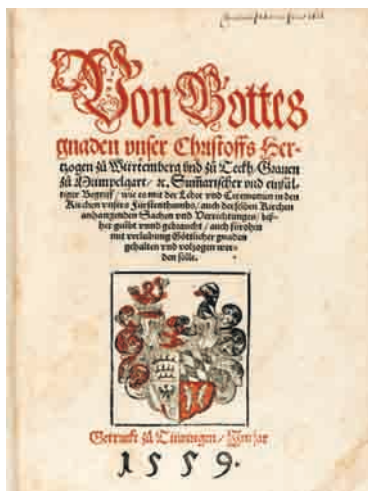 Von Gottes
gnaden vnser Christoffs Her-
tzogen zů Würtemberg vnd zů Teckh / Grauen
zů Mümpelgart / ꝛc. Summarischer vnd einfäl-
tiger Begriff / wie es mit der Lehre vnd Ceremonien in den
Kirchen vnsers Fürstenthumbs / auch derselben Kirchen
anhangenden Sachen vnd Verrichtungen / biß-
her geübt vnnd gebraucht / auch fürohin
mit verleihung Göttlicher gnaden
gehalten vnd volzogen wer-
den solle.
Getruckt zů Tüwingen / Im jar
1559.